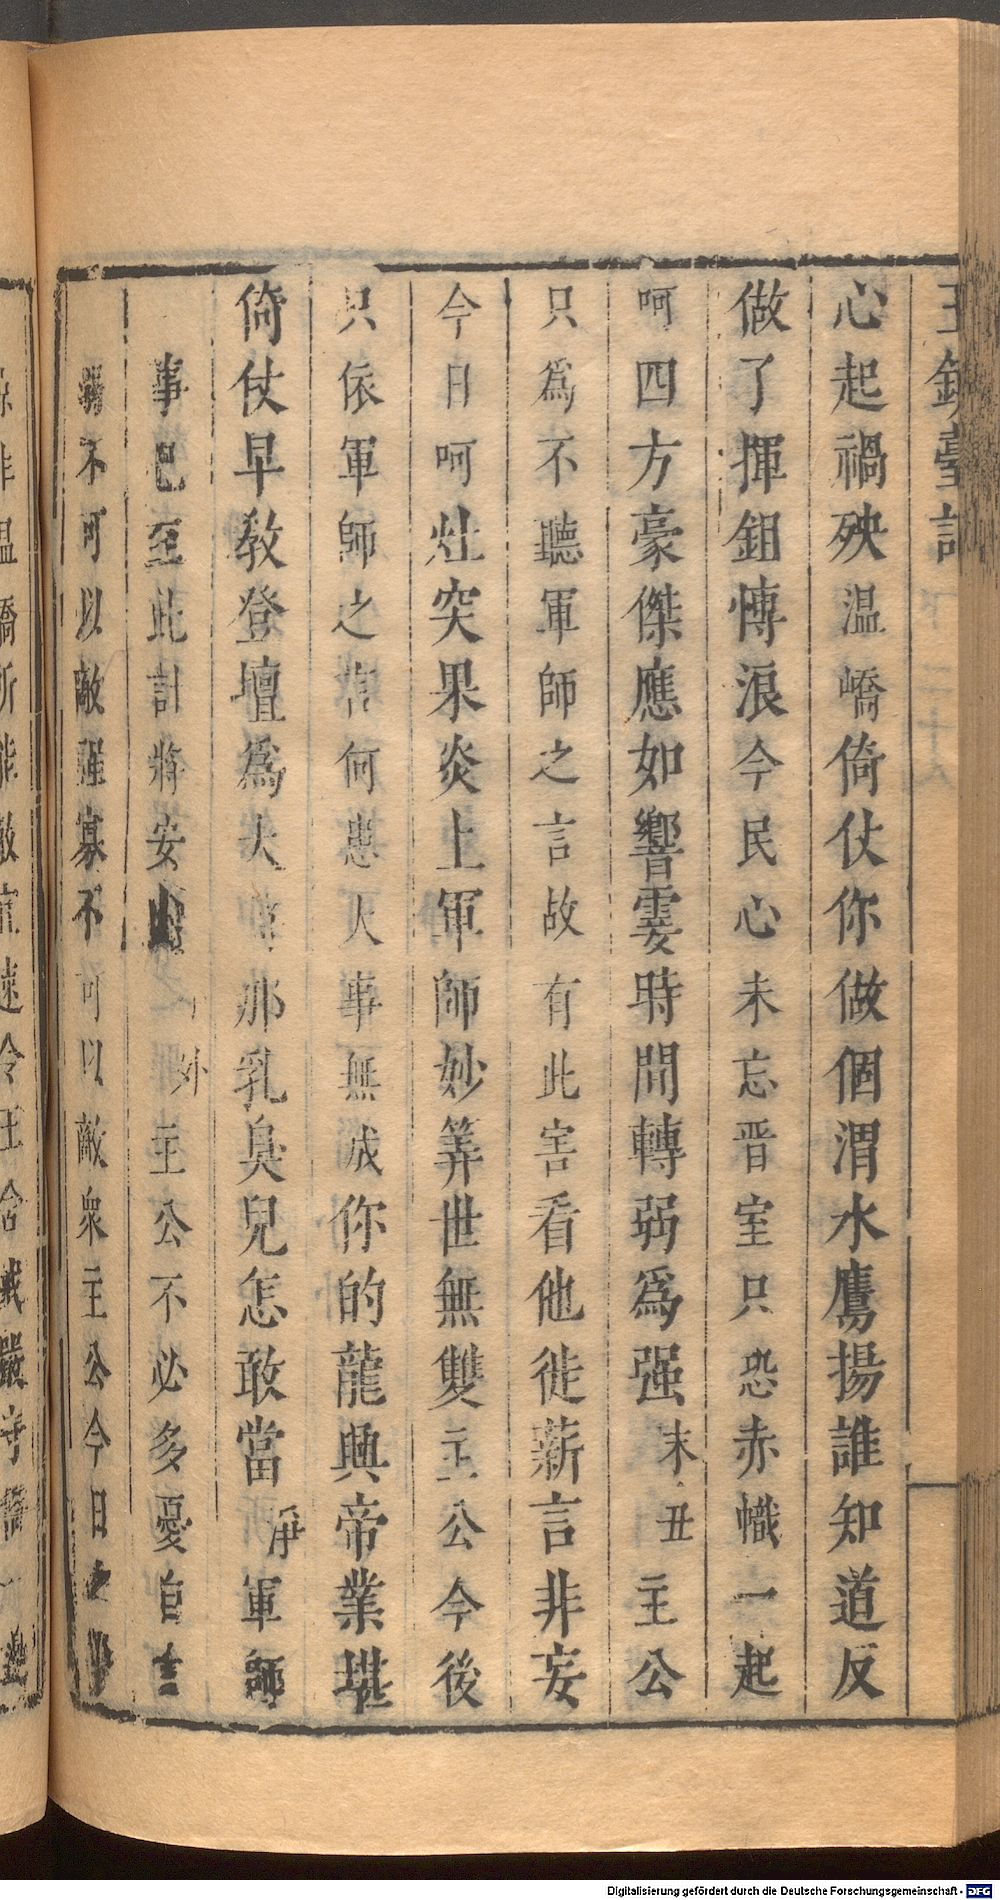 玉鏡臺記
心起禍殃溫嶠倚仗你做個渭水鷹揚誰知道反
做了揮鉏慱浪今民心未忘晋室只恐赤幟一起
呵四方豪傑應如響霎時間轉弱爲强末丑主公
只爲不聽軍師之言故有此害看他徙薪言非妄
今日呵灶突果炎上軍師妙筭世無雙主公今後
只依軍師之言何患大事無成你的龍興帝業堪
倚仗早敎登壇爲大將那乳臭兒怎敢當淨軍師
事已至此計將安出外主公不必多憂自古
弱不可以敵强寡不可以敵衆主公今日之
Digitalisierung gefördert durch die Deutsche Forschungsgemeinschaft - DFG